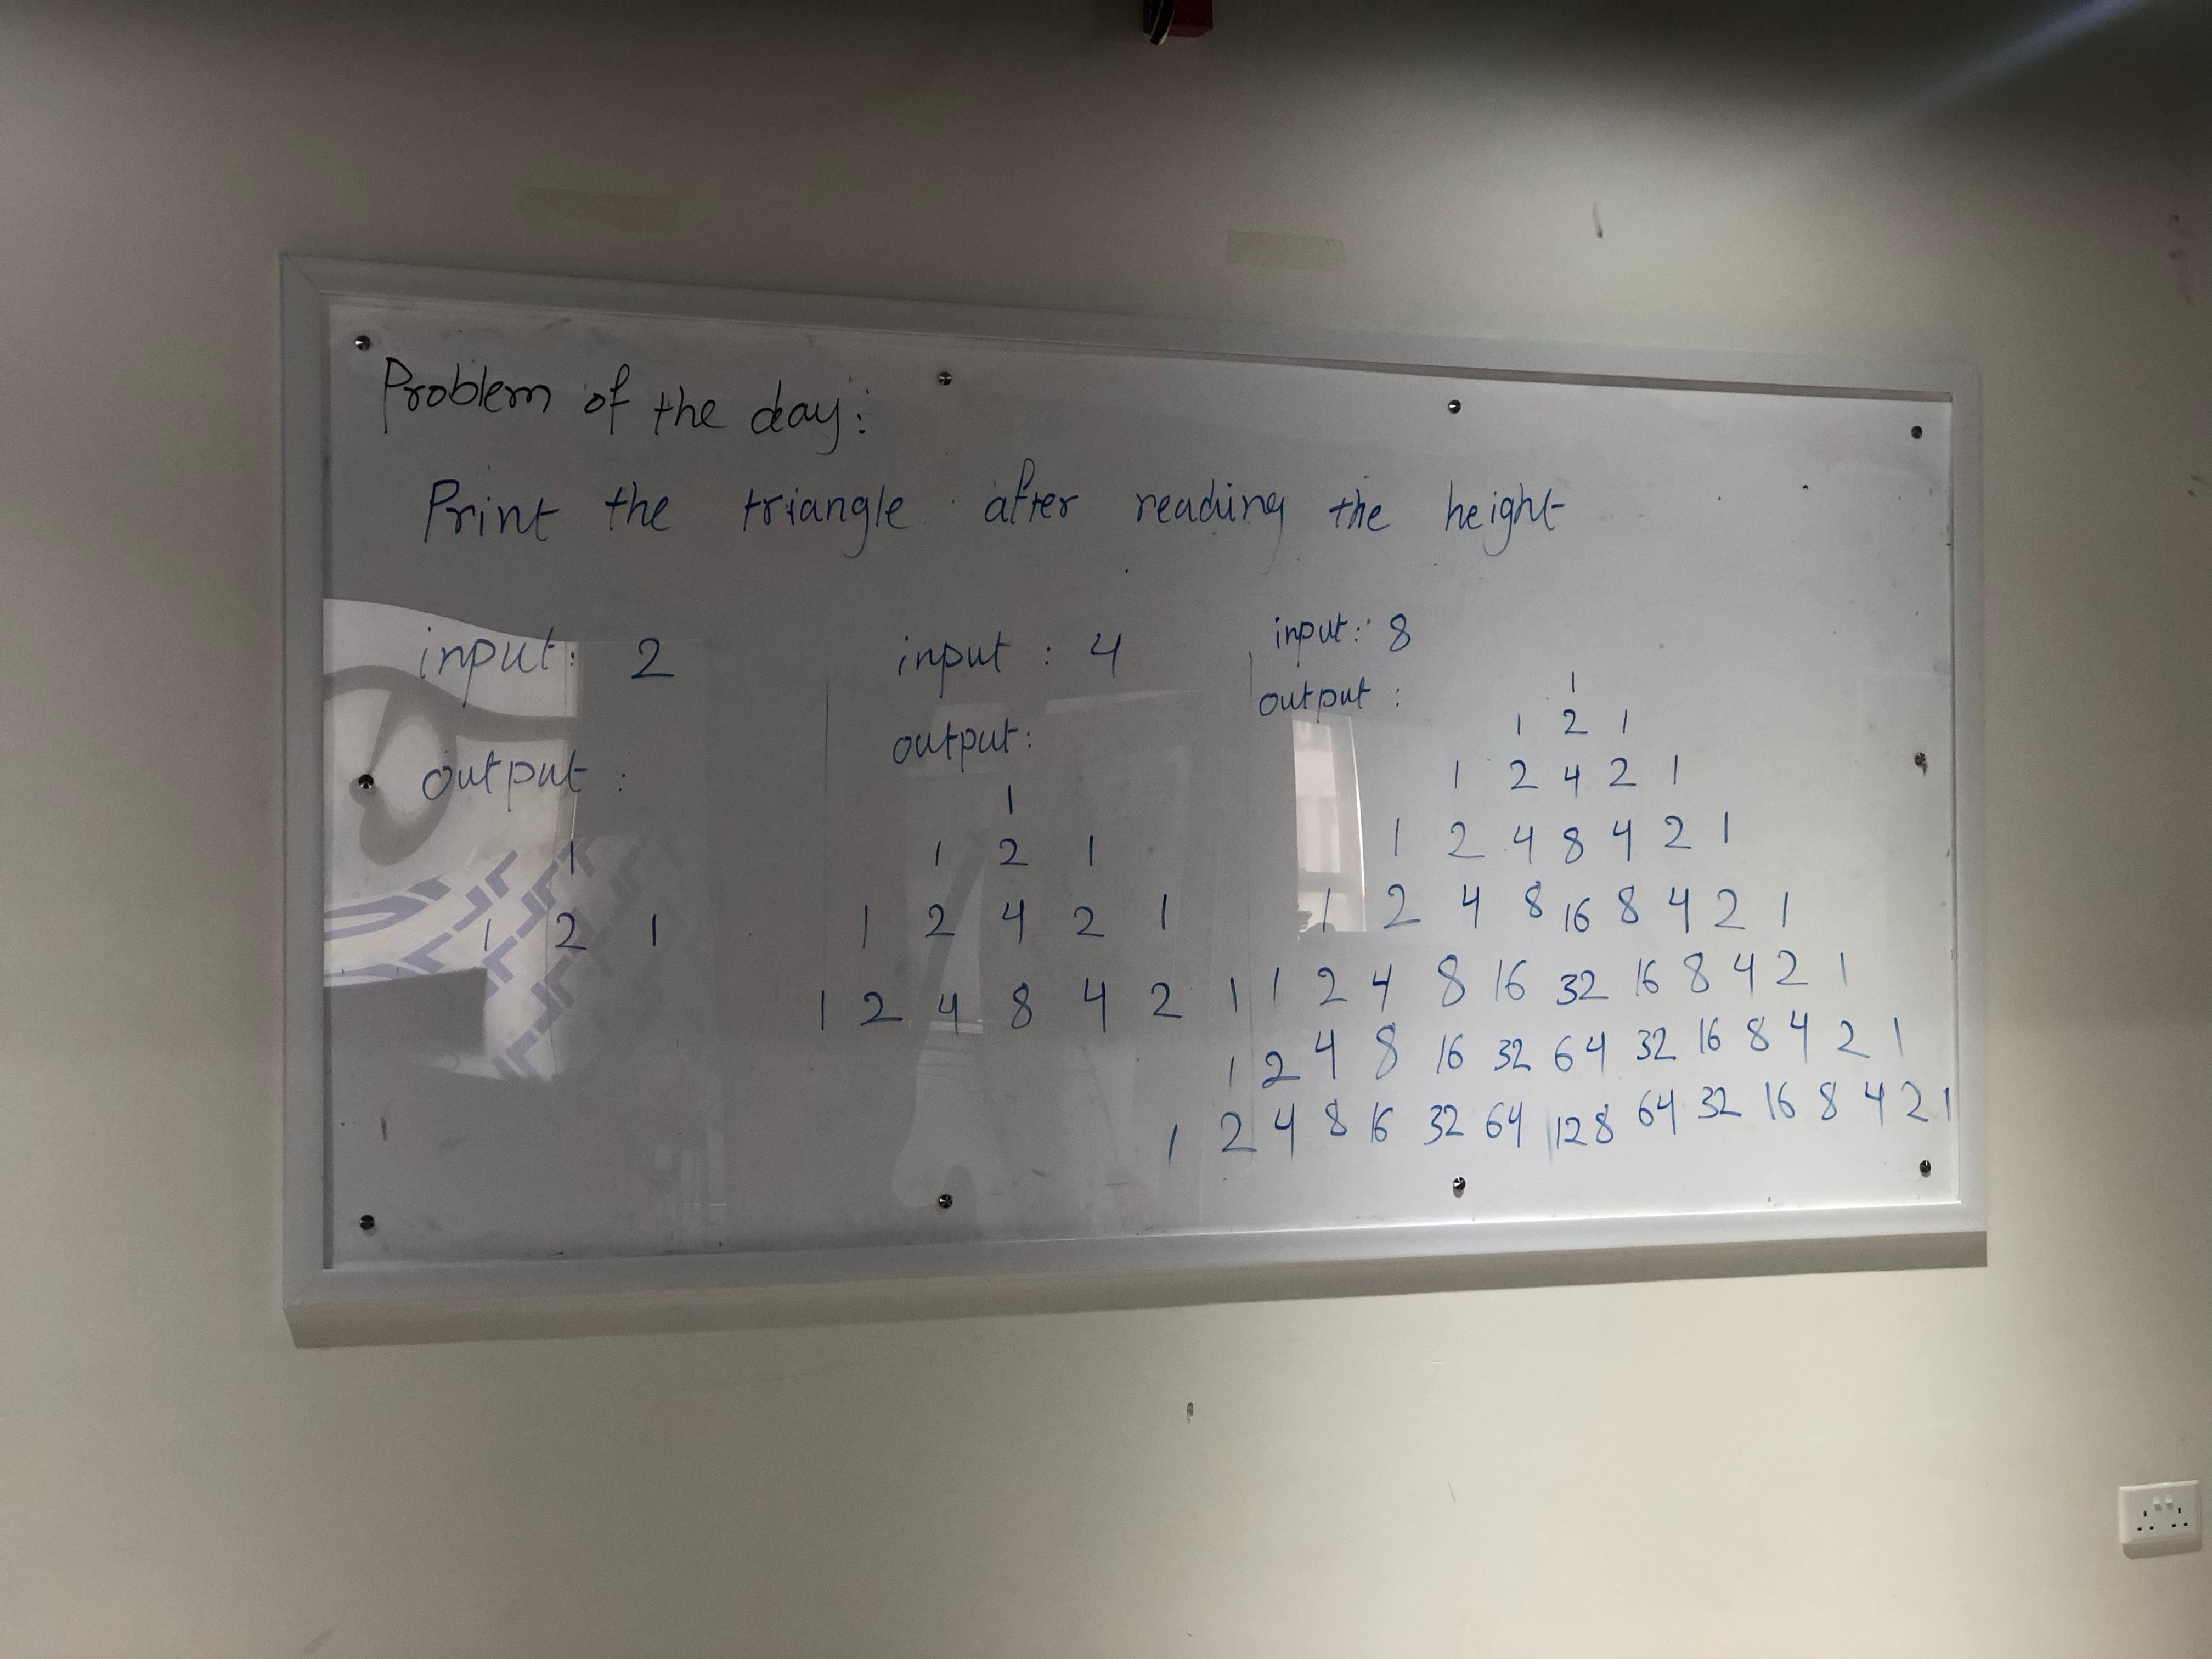 Problem of the day:
Print the triangle after reading the height
input: 2
output:
1
1 2 1
input : 4
output:
1
1 2 1
1 2 4 2 1
1 2 4 8 4 2 1
input: 8
output :
1
1 2 1
1 2 4 2 1
1 2 4 8 4 2 1
1 2 4 8 16 8 4 2 1
1 2 4 8 16 32 16 8 4 2 1
1 2 4 8 16 32 64 32 16 8 4 2 1
1 2 4 8 16 32 64 128 64 32 16 8 4 2 1